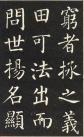 窮者採之義
田可法出而
問世揚名顯